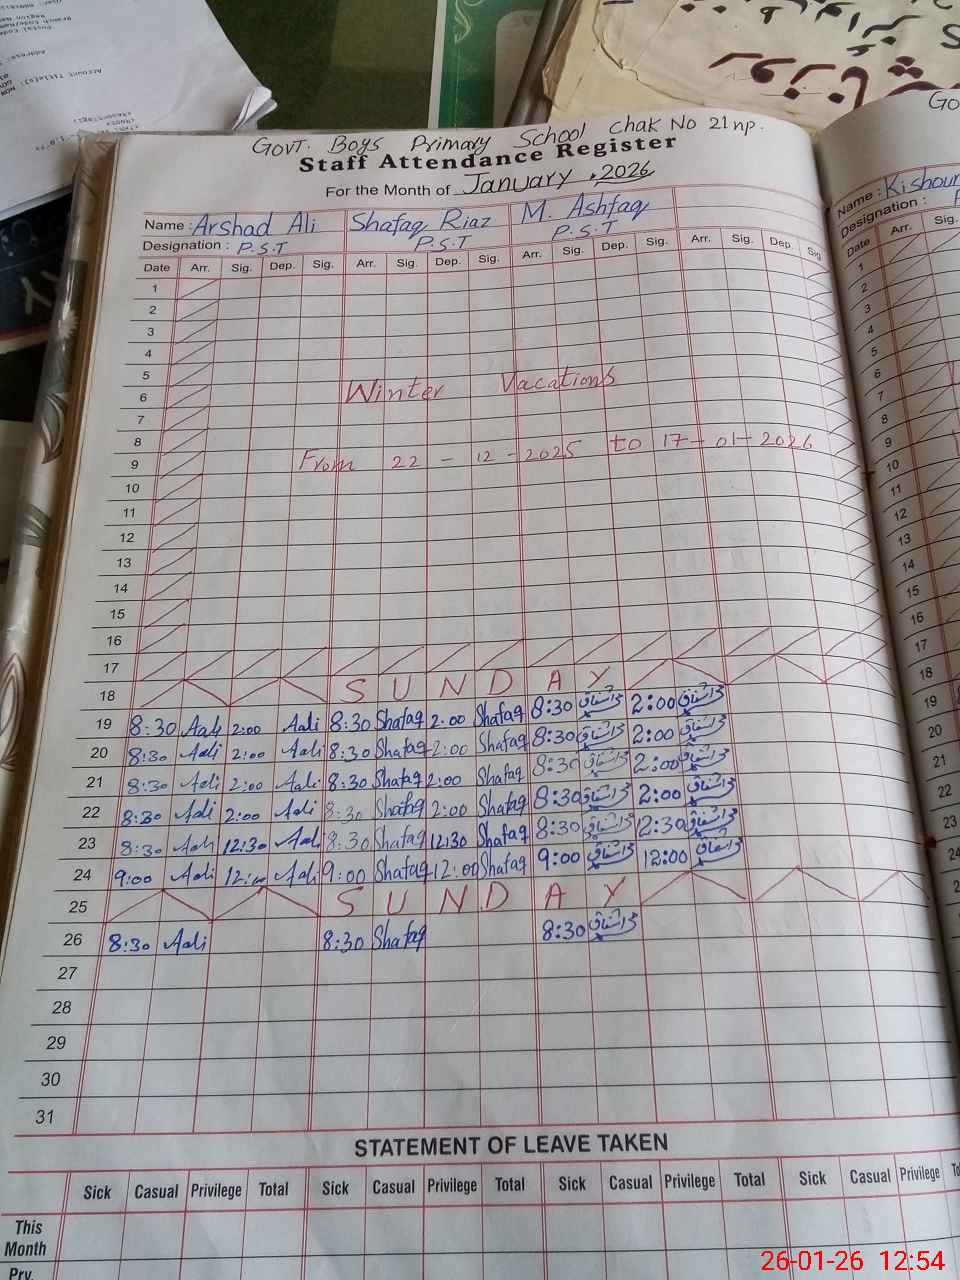 Govt. Boys Primary School Chak No 21 np.
Staff Attendance Register
For the Month of January, 2026
Name : Arshad Ali Shafaq Riaz M. Ashfaq
Designation : P.S.T P.S.T P.S.T
Date Arr. Sig. Dep. Sig. Arr. Sig. Dep. Sig. Arr. Sig. Dep. Sig. Arr. Sig. Dep. Sig.
1
2
3
4
5
6 Winter Vacations
7
8
9 From 22 - 12 - 2025 to 17 - 01 - 2026
10
11
12
13
14
15
16
17
18 SUNDAY
19 8:30 Aali 2:00 Aali 8:30 Shafaq 2:00 Shafaq 8:30 2:00
20 8:30 Aali 2:00 Aali 8:30 Shafaq 2:00 Shafaq 8:30 2:00
21 8:30 Aali 2:00 Aali 8:30 Shafaq 2:00 Shafaq 8:30 2:00
22 8:30 Aali 2:00 Aali 8:30 Shafaq 2:00 Shafaq 8:30 2:00
23 8:30 Aali 12:30 Aali 8:30 Shafaq 12:30 Shafaq 8:30 12:30
24 9:00 Aali Aali 9:00 Shafaq 12:00 Shafaq 9:00 12:00
25 SUNDAY
26 8:30 Aali 8:30 Shafaq 8:30
27
28
29
30
31
STATEMENT OF LEAVE TAKEN
Sick Casual Privilege Total Sick Casual Privilege Total Sick Casual Privilege Total Sick Casual Privilege
This
Month
Prv.
Name : Kishour
Designation :
Date Arr. Sig.
1
2
3
4
5
6
7
8
9
10
11
12
13
14
15
16
17
18
19
20
21
22
23
24
26-01-26 12:54